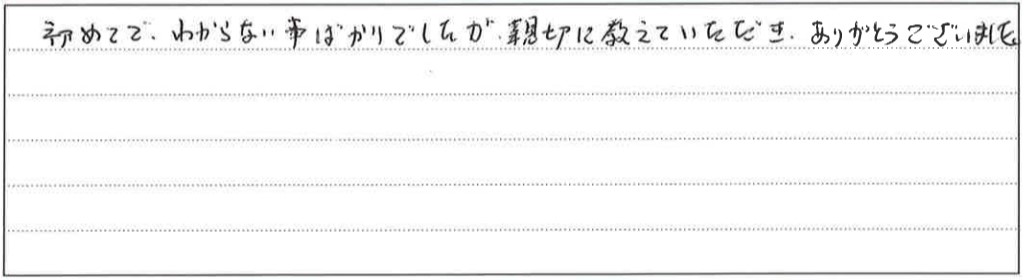 初めてで、わからない事ばかりでしたが、親切に教えていただき、ありがとうございました。